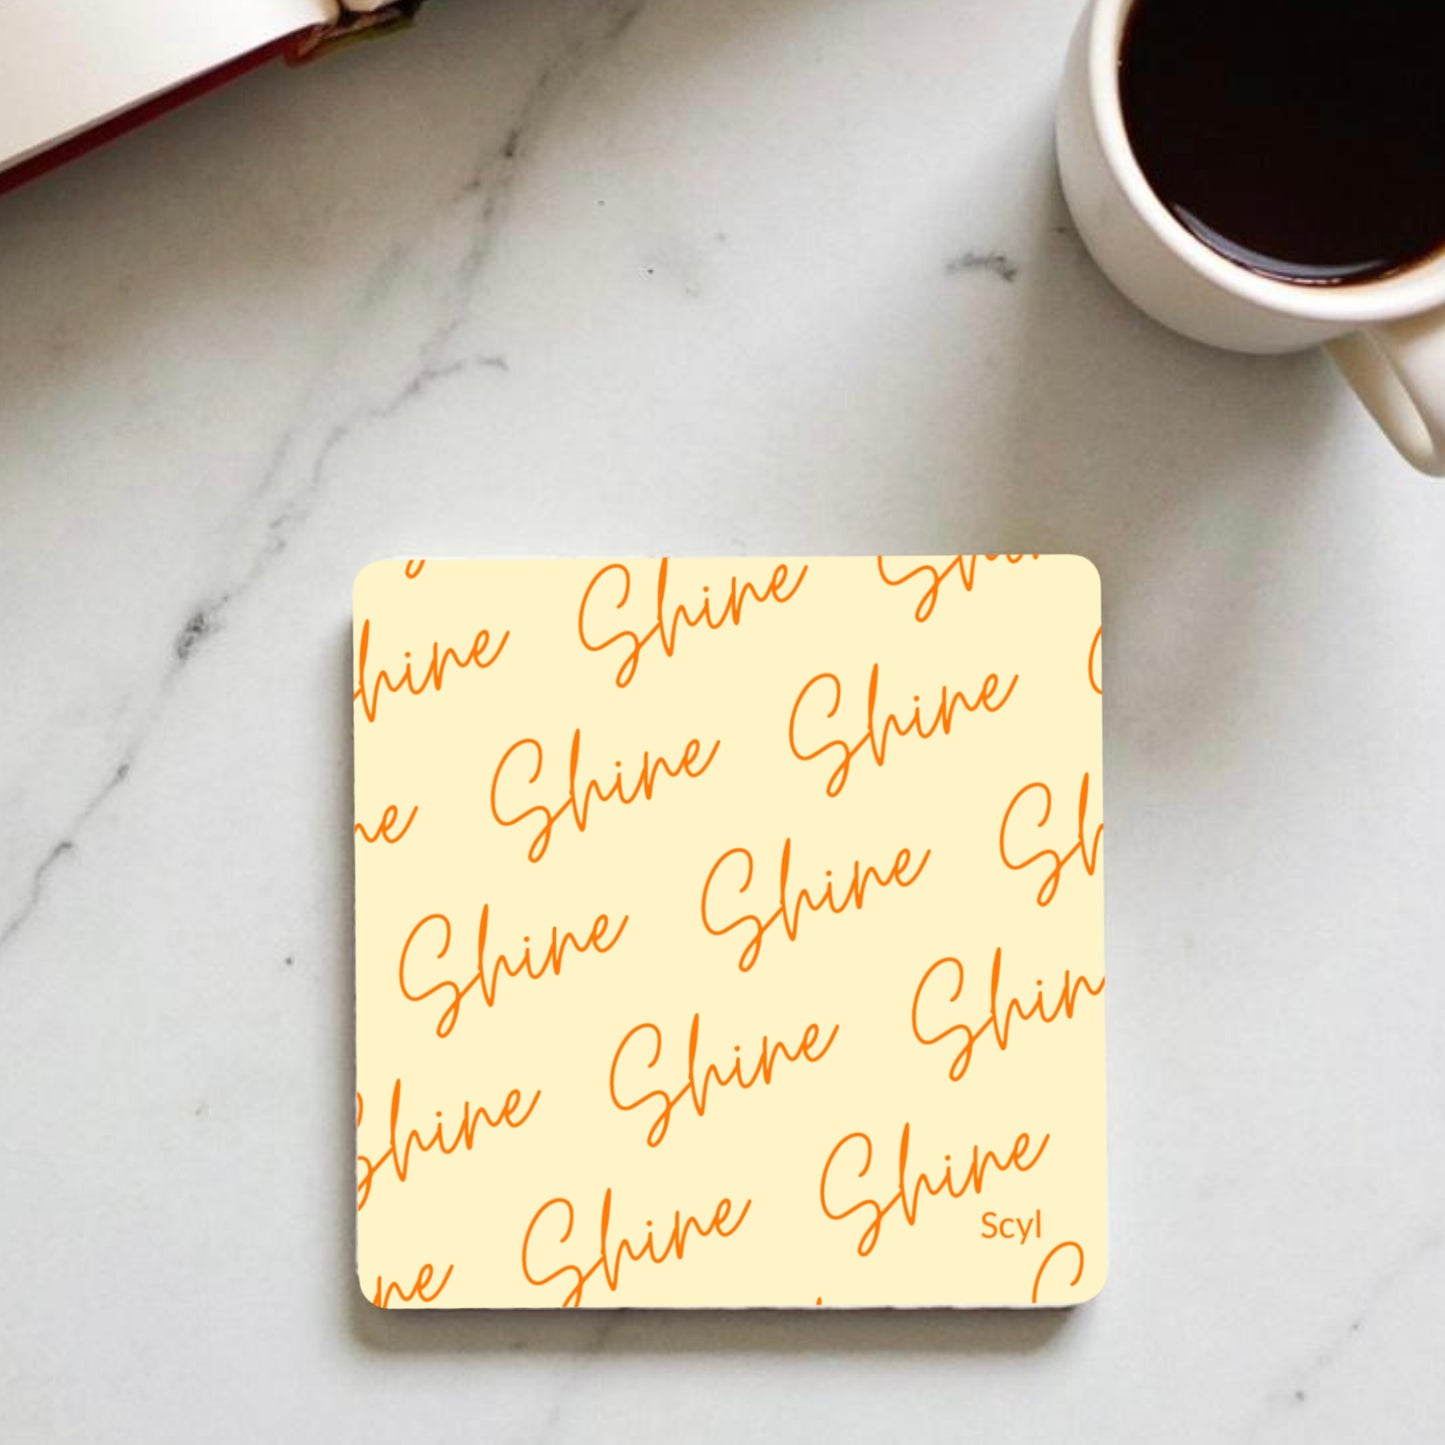 Shine Shine Shine
Shine Shine
Shine Shine Sh
Shine Shine Shin
Shine Shine
Scyl